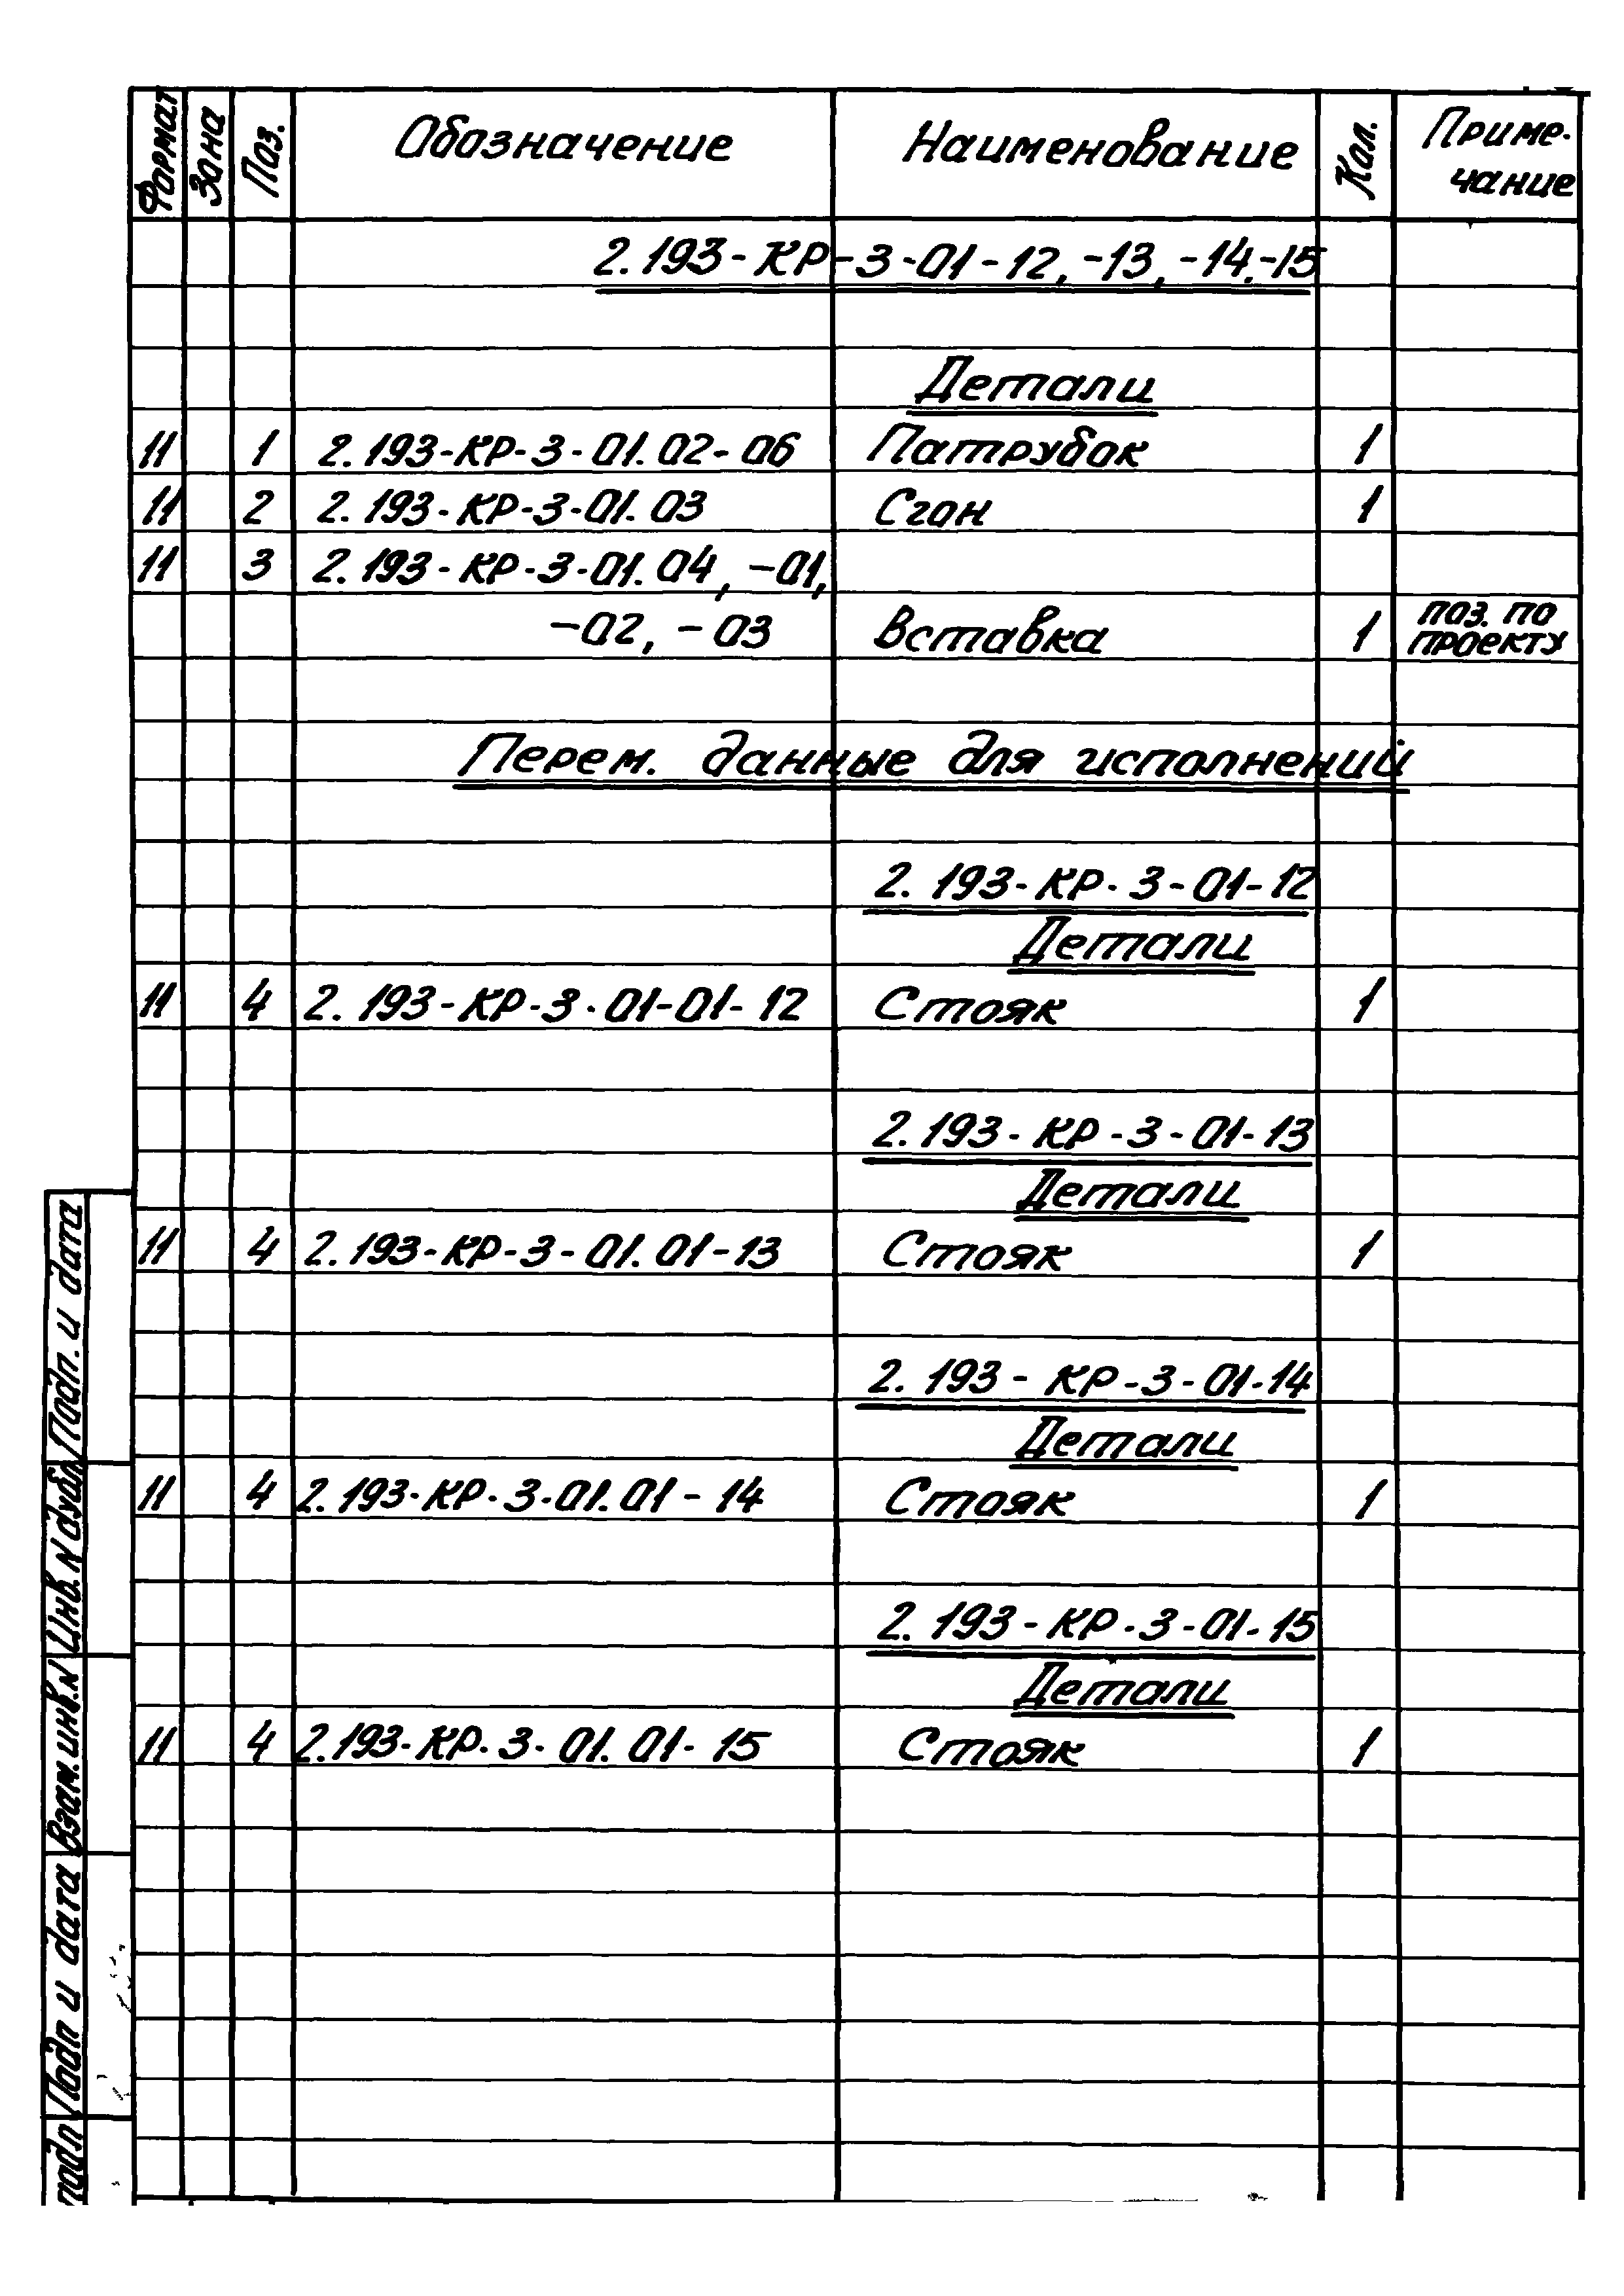 Формат Зона Поз. Обозначение Наименование Кол. Приме-
чание
2.193-КР-3-01-12,-13,-14,-15
Детали
11 1 2.193-КР-3-01.02-06 Патрубок 1
11 2 2.193-КР-3-01.03 Сгон 1
11 3 2.193-КР-3-01.04,-01,
-02,-03 Вставка 1 поз. по
проекту
Перем. данные для исполнений
2.193-КР-3-01-12
Детали
11 4 2.193-КР-3-01-01-12 Стояк 1
2.193-КР-3-01-13
Детали
11 4 2.193-КР-3-01.01-13 Стояк 1
2.193-КР-3-01-14
Детали
11 4 2.193-КР-3-01.01-14 Стояк 1
2.193-КР-3-01-15
Детали
11 4 2.193-КР-3-01.01-15 Стояк 1
Подп. и дата
Инв. N дубл
Взам. инв. N
Подп и дата
подл